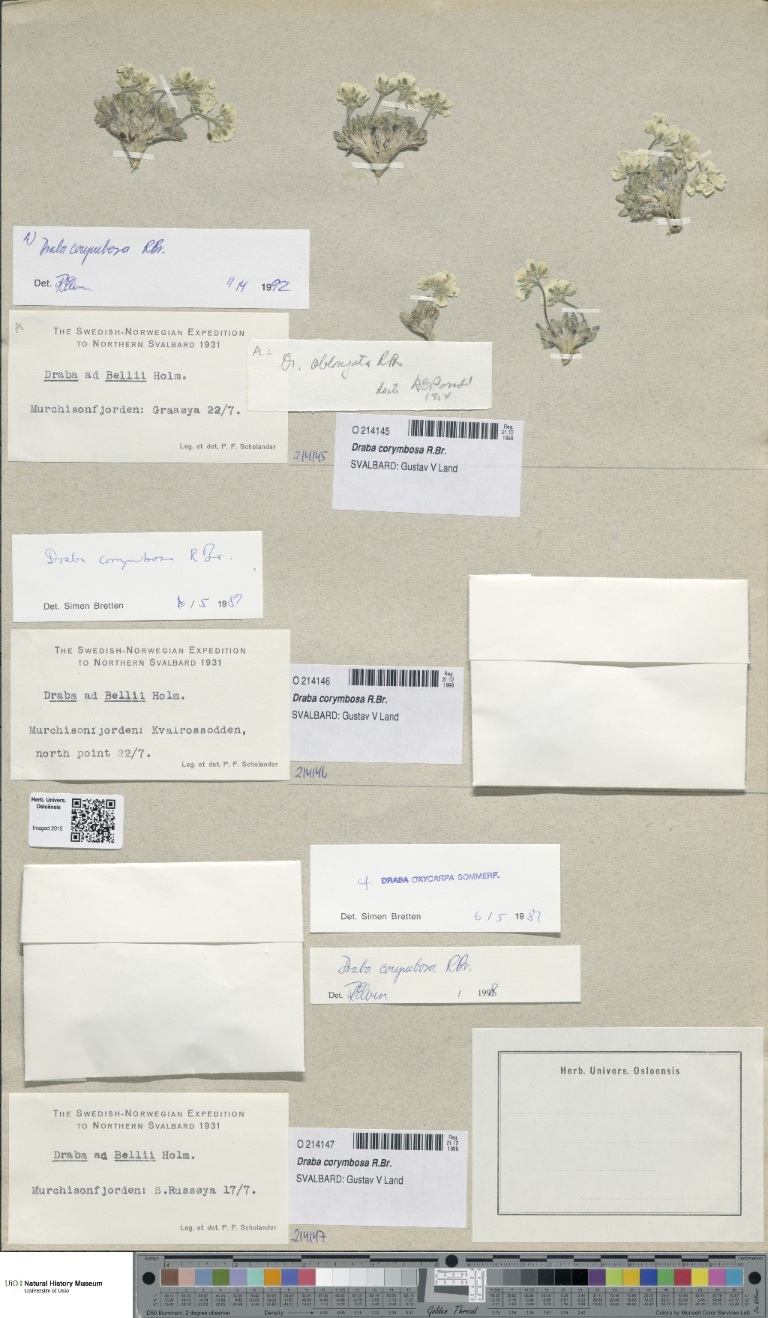 A) Draba corymbosa R.Br.
Det. R Elven 11/4 1992
THE SWEDISH-NORWEGIAN EXPEDITION
TO NORTHERN SVALBARD 1931
Draba ad Bellii Holm.
Murchisonfjorden: Graaøya 22/7.
Leg. et det. P. F. Scholander
A:= Dr. oblongata R.Br.
214145
O 214145
Reg.
21.12
1998
Draba corymbosa R.Br.
SVALBARD: Gustav V Land
Draba corymbosa R Br.
Det. Simen Bretten 6 / 5 1987
THE SWEDISH-NORWEGIAN EXPEDITION
TO NORTHERN SVALBARD 1931
Draba ad Bellii Holm.
Murchisonfjorden: Kvalrossodden,
north point 22/7.
Leg. et det. P. F. Scholander
O 214146
Reg.
21.12
1998
Draba corymbosa R.Br.
SVALBARD: Gustav V Land
214146
Herb. Univers.
Osloënsis
Imaged 2015
cf. DRABA OXYCARPA SOMMERF.
Det. Simen Bretten 6 / 5 1987
Draba corymbosa R.Br.
Det. R Elven / 1998
Herb. Univers. Osloensis
THE SWEDISH-NORWEGIAN EXPEDITION
TO NORTHERN SVALBARD 1931
Draba ad Bellii Holm.
Murchisonfjorden: S.Russøya 17/7.
Leg. et det. P. F. Scholander
O 214147
Reg.
21.12
1998
Draba corymbosa R.Br.
SVALBARD: Gustav V Land
214147
UiO Natural History Museum
University of Oslo
D50 Illuminant, 2 degree observer
Density
Golden Thread
Colors by Munsell Color Services Lab